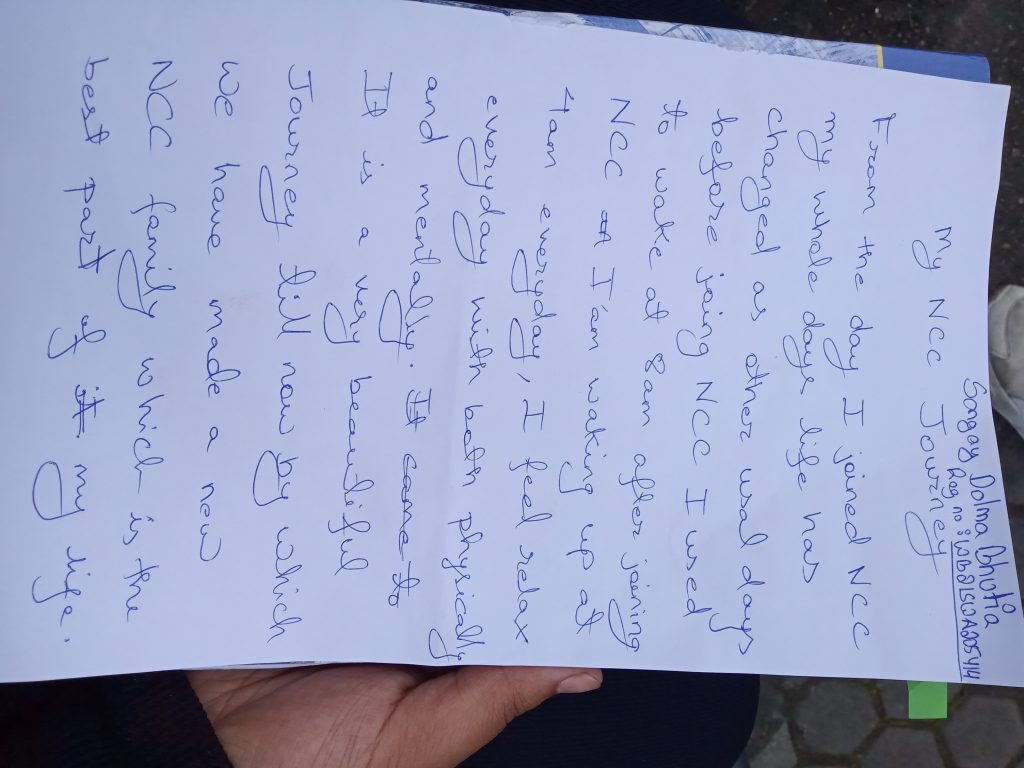 Songay Dolma Bhutia
Reg no :
My NCC Journey
From the day I joined NCC
my whole days life has
changed as other usal days
before joing NCC I used
to wake at 8am after joining
NCC I am waking up at
4am everyday, I feel relax
everyday with both physically
and mentally. It came to
It is a very beautiful
Journey till now by which
We have made a new
NCC family which is the
best part of it my life.